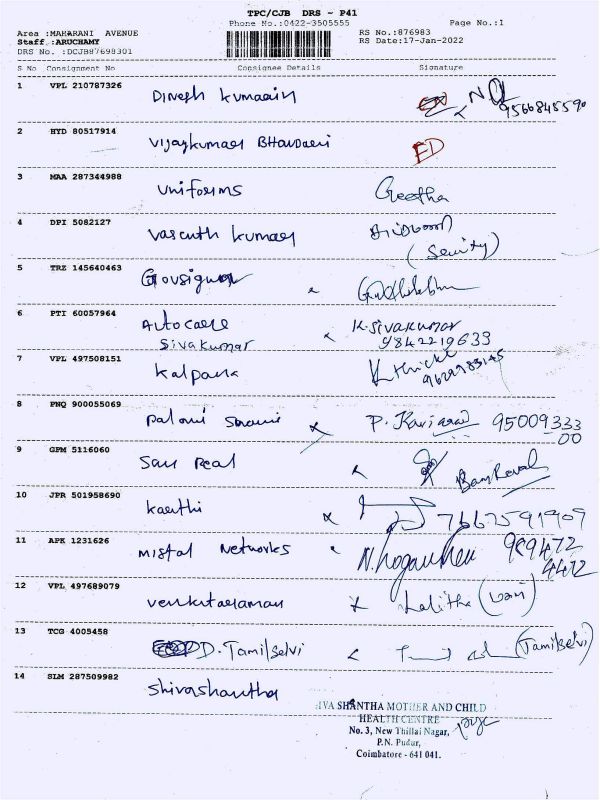 TPC/CJB DRS - P41
Phone No.:0422-3505555
Page No.:1
Area :MAHARANI AVENUE
RS No.:876983
Staff :ARUCHAMY
RS Date:17-Jan-2022
DRS No. :DCJB87698301
S No Consignment No Consignee Details Signature
1 VPL 210787326 Dinesh Kumar
9566845590
2 HYD 80517914 Vijaykumar Bhandari
3 MAA 287344988 Uniforms Geetha
4 DPI 5082127 Vasanth Kumar
5 TRZ 145640463
6 PTI 60057964 Autocare K.Sivakumar
Sivakumar 9842219633
7 VPL 497508151 Kalpana
8 PNQ 900055069 Palani Swami 95009333
00
9 GPM 5116060
10 JPR 501958690 Karthi 7667591909
11 APK 1231626 Mistal Networks 989472
4472
12 VPL 497689079 Venkataraman Lalitha
13 TCG 4005458 D.Tamilselvi (Tamilselvi)
14 SLM 287509982 Shivashantha
SHANTHA MOTHER AND CHILD
HEALTH CENTRE
No. 3, New Thillai Nagar,
P.N. Pudur,
Coimbatore - 641 041.